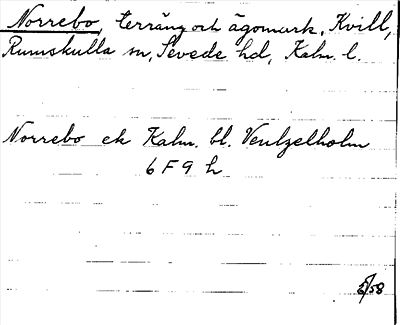 Norrebo, terräng och ägomark, Kvill,
Rumskulla sn, Sevede hd, Kalm. l.
Norrebo ek Kalm. bl. Ventzelholm
6 F 9 h
58